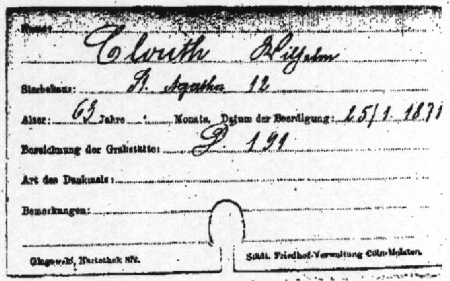 Name:
Clouth Wilhelm
Sterbehaus: St. Agatha 12
Alter: 63 Jahre Monate. Datum der Beerdigung: 25/1 1871
Bezeichnung der Grabstätte: P 191
Art des Denkmals:
Bemerkungen:
Städt. Friedhof-Verwaltung Cöln-Melaten.